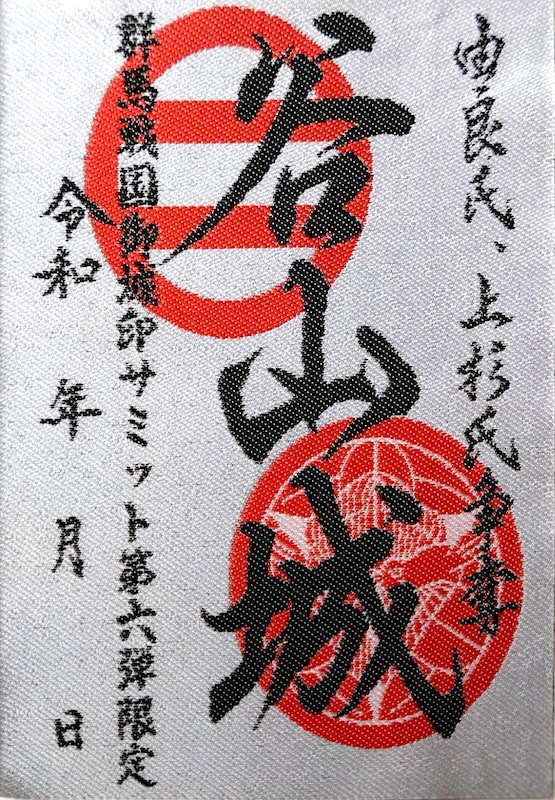 由良氏・上杉氏争奪
谷山城
群馬戦国御城印サミット第六弾限定
令和 年 月 日